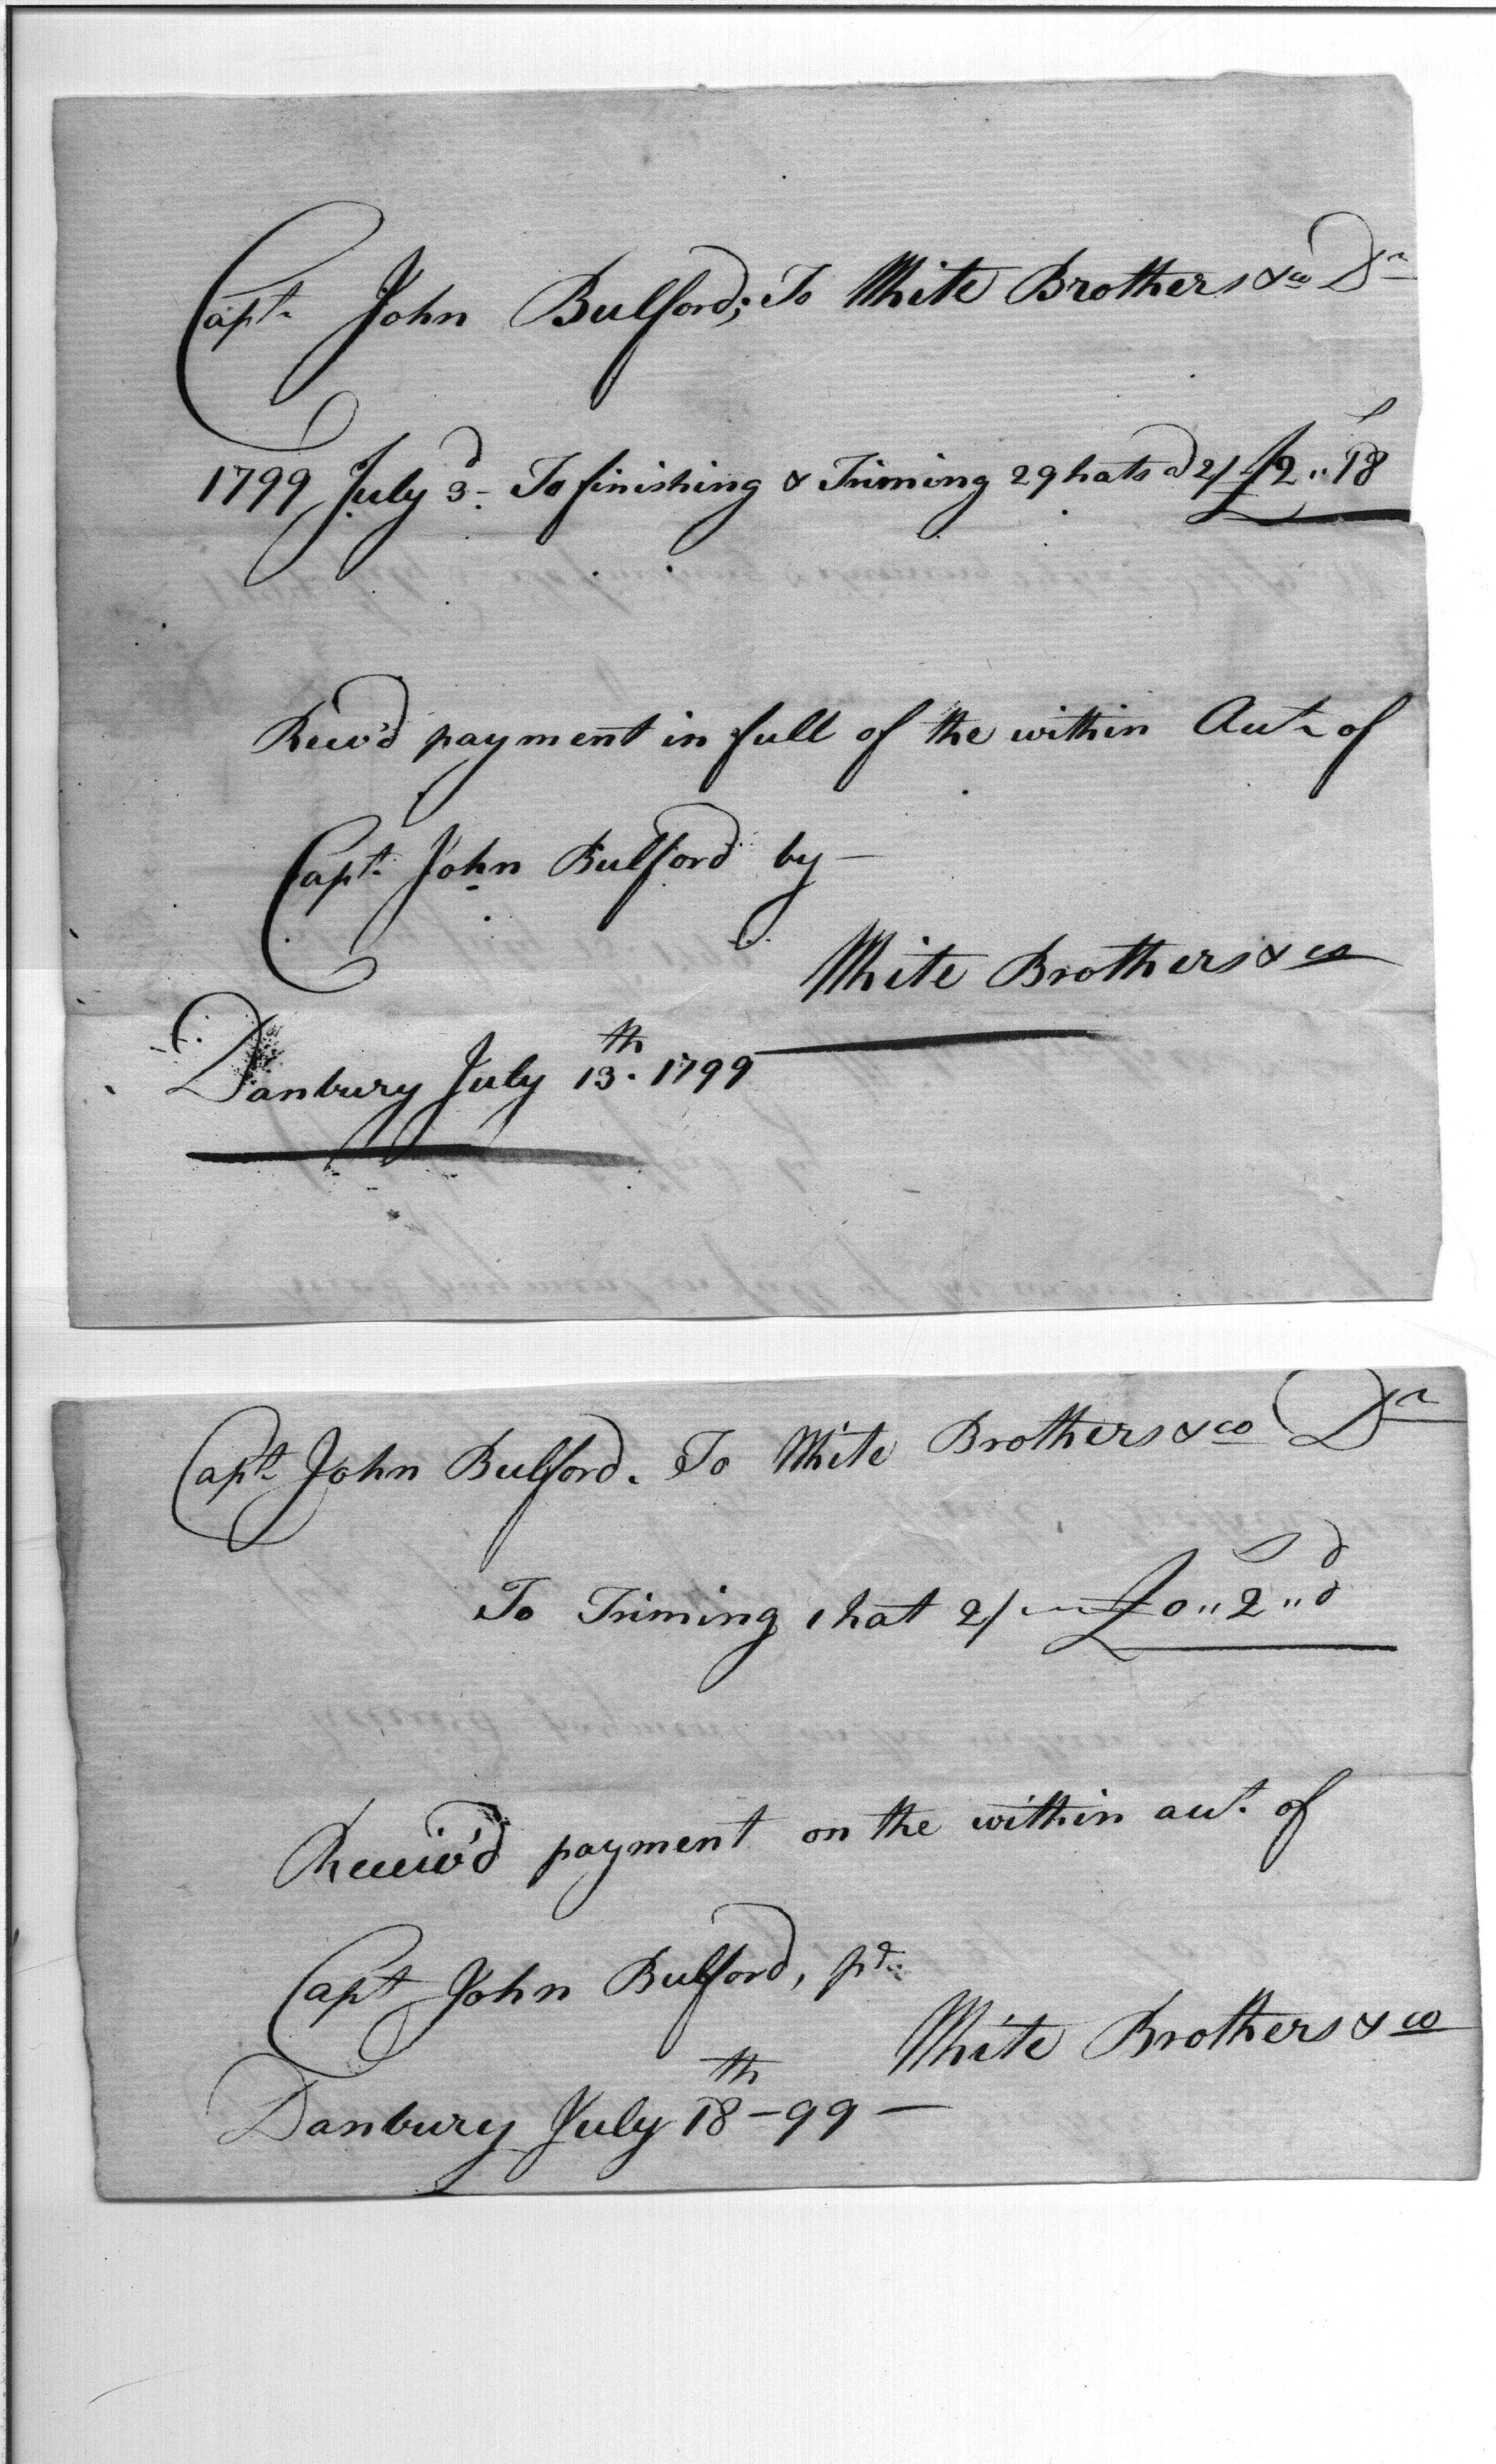 Capt. John Bulford; To White Brothers & co Dr
1799 July 3d - To finishing & Triming 29 hats @ 2/ £2 .. 18 s
Recev'd payment in full of the within Acct. of
Capt. John Bulford by —
White Brothers & co
Danbury July 13th. 1799
Capt. John Bulford. To White Brothers & co Dr
s d
To Triming 1 hat 2/ — £0 .. 2 .. 0
Receiv'd payment on the within acct. of
Capt John Bulford, pd.
White Brothers & co
Danbury July 18th - 99 —